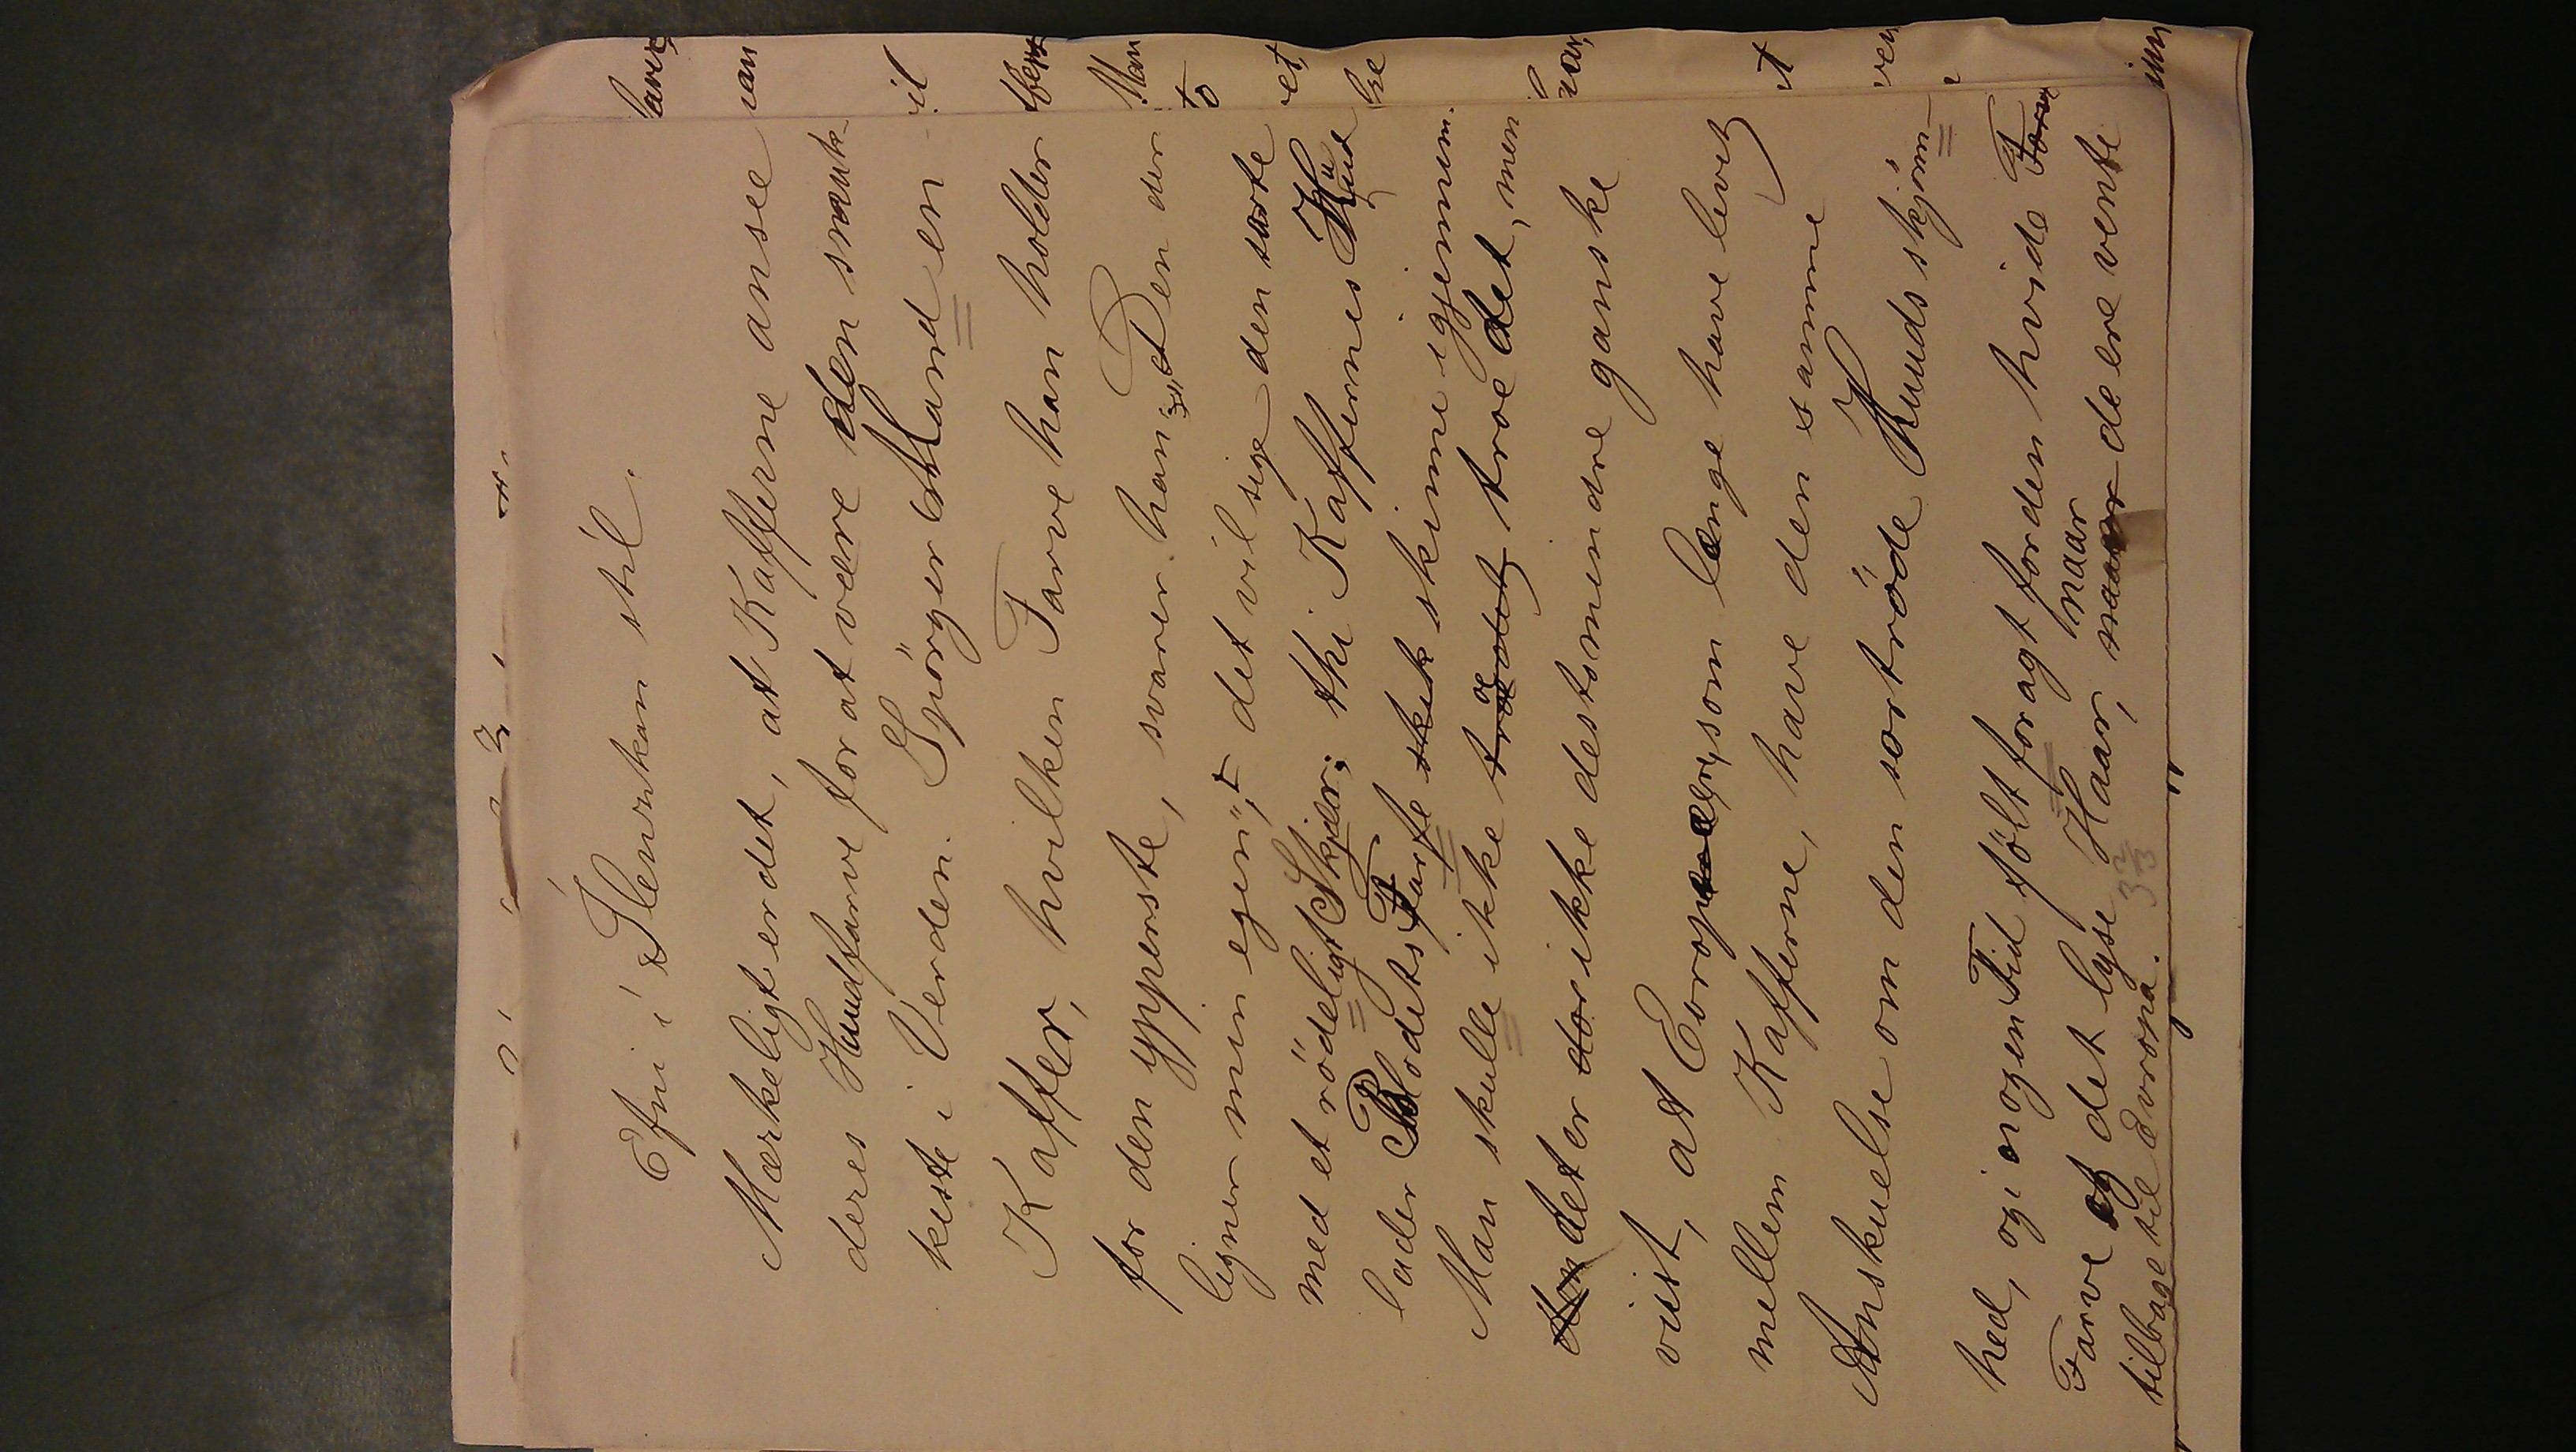 Efni í Ilenzkan stíl.
Mærkeligt er det, at Kafferne ansee
deres Hudfarve for at være den smuk-
keste i Verden. Spörger Mand en
Kaffer, hvilken Farve han holder
for den ypperste, svarer han: „Den der
ligner min egen“, det vil sige den sorte
med et rödeligt Skjær; thi Kaffernes Hud
lader Blodets Farfe skinne igjennem.
Man skulle ikke troe det, men
det er ikke destomindre ganske
viist, at Europæer, som længe have levet
mellem Kafferne, have den samme
Anskuelse om den sortröde Huuds skjönn-
hed, og i nogen Tid fölt foragt for den hvide
Farve og det lyse Haar, naar de ere vente
tilbage til Evropa.